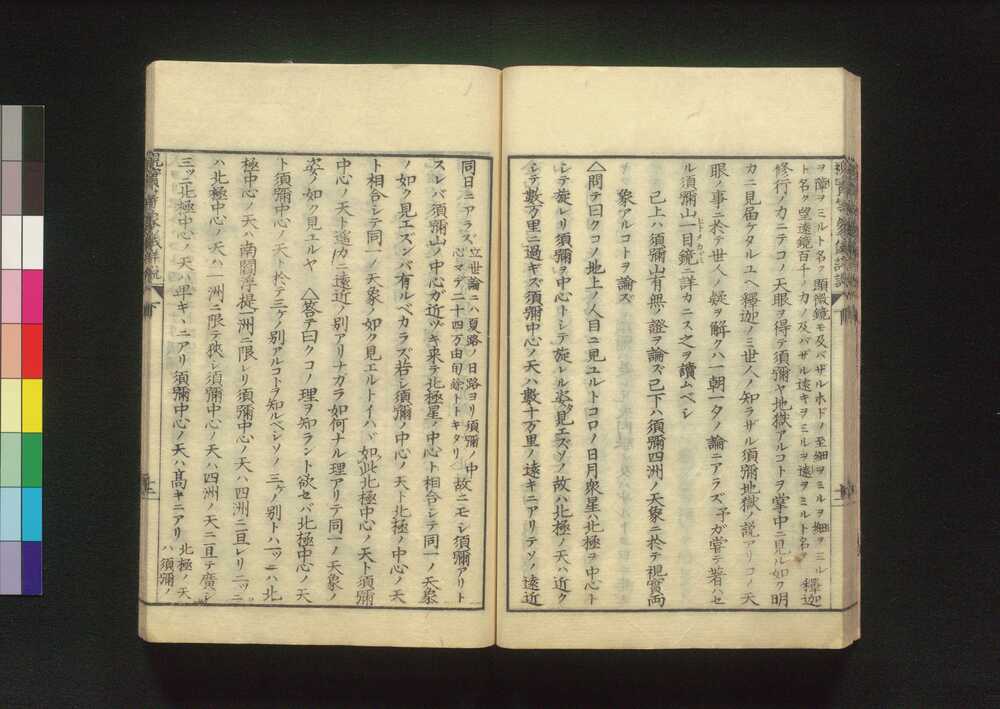 ヲ藻ヲミルト名ク顕微鏡モ及バザルホドノ至細ヲミルヲ細ヲミル
ト名ク望遠鏡百千ノカノ及バザル遠キヲミルヲ遠ヲミルト名ク
釋迦
修行ノカニテコノ天眼ヲ得テ須彌ヤ地獄アルコトヲ掌中ニ見ル如ク明
カニ見届ケタルユヘ釋迦ノミ世人ノ知ラザル須彌地獄ノ説アリコノ天
眼ノ事ニ於テ世人ノ疑ヲ解クハ一朝一夕ノ論ニアラズ予ガ嘗テ著ハセ
ル須彌山一目鏡ニ詳カニス之ヲ讀ムベシ
已上ハ須彌山有無ノ證ヲ論ズ已下ハ須彌四洲ノ天象ニ於テ視實兩
象アルコトヲ論ズ
△問テ曰クコノ地上ノ人目ニ見ユルトコロノ日月衆星ハ北極ヲ中心ト
シテ旋レリ須彌ヲ中心トシテ旋レル姿タ見エズソノ故ハ北極ノ天ハ近ク
シテ數万里ニ過ギズ須彌中心ノ天ハ數十万里ノ遠キニアリテソノ遠近
同日ニアラズ
立世論ニハ夏路ノ日路ヨリ須彌ノ中
心マデ二十四万由旬餘トトキタリ
故ニモシ須彌アリト
スレバ須彌山ノ中心ガ近ヅキ来テ北極星ノ中心ト相合シテ同一ノ天象
ノ如ク見エズンバ有ルベカラズ若シ須彌ノ中心ノ天ト北極ノ中心ノ天
ト相合シテ同一ノ天象ノ如ク見エルトイハバ如此北極中心ノ天ト須彌
中心ノ天ト遥カニ遠近ノ別アリナガラ如何ナル理アリテ同一ノ天象ノ
姿ノ如ク見エルヤ △答テ曰クコノ理ヲ知ラント欲セバ北極中心ノ天
ト須彌中心ノ天ト於テ三ケノ別アルコトヲ知ルベシソノ三ケノ別トハ一ツニハ北
極中心ノ天ハ南閻浮提一洲ニ限レリ須彌中心ノ天ハ四洲ニ亘レリ二ツニ
ハ北極中心ノ天ハ一洲ニ限テ狹シ須彌中心ノ天ハ四洲ノ天ニ亘テ廣シ
三ツニ北極中心ノ天ハ卑キニアリ須彌中心ノ天ハ髙キニアリ
北極ノ天
ハ須彌ノ
下